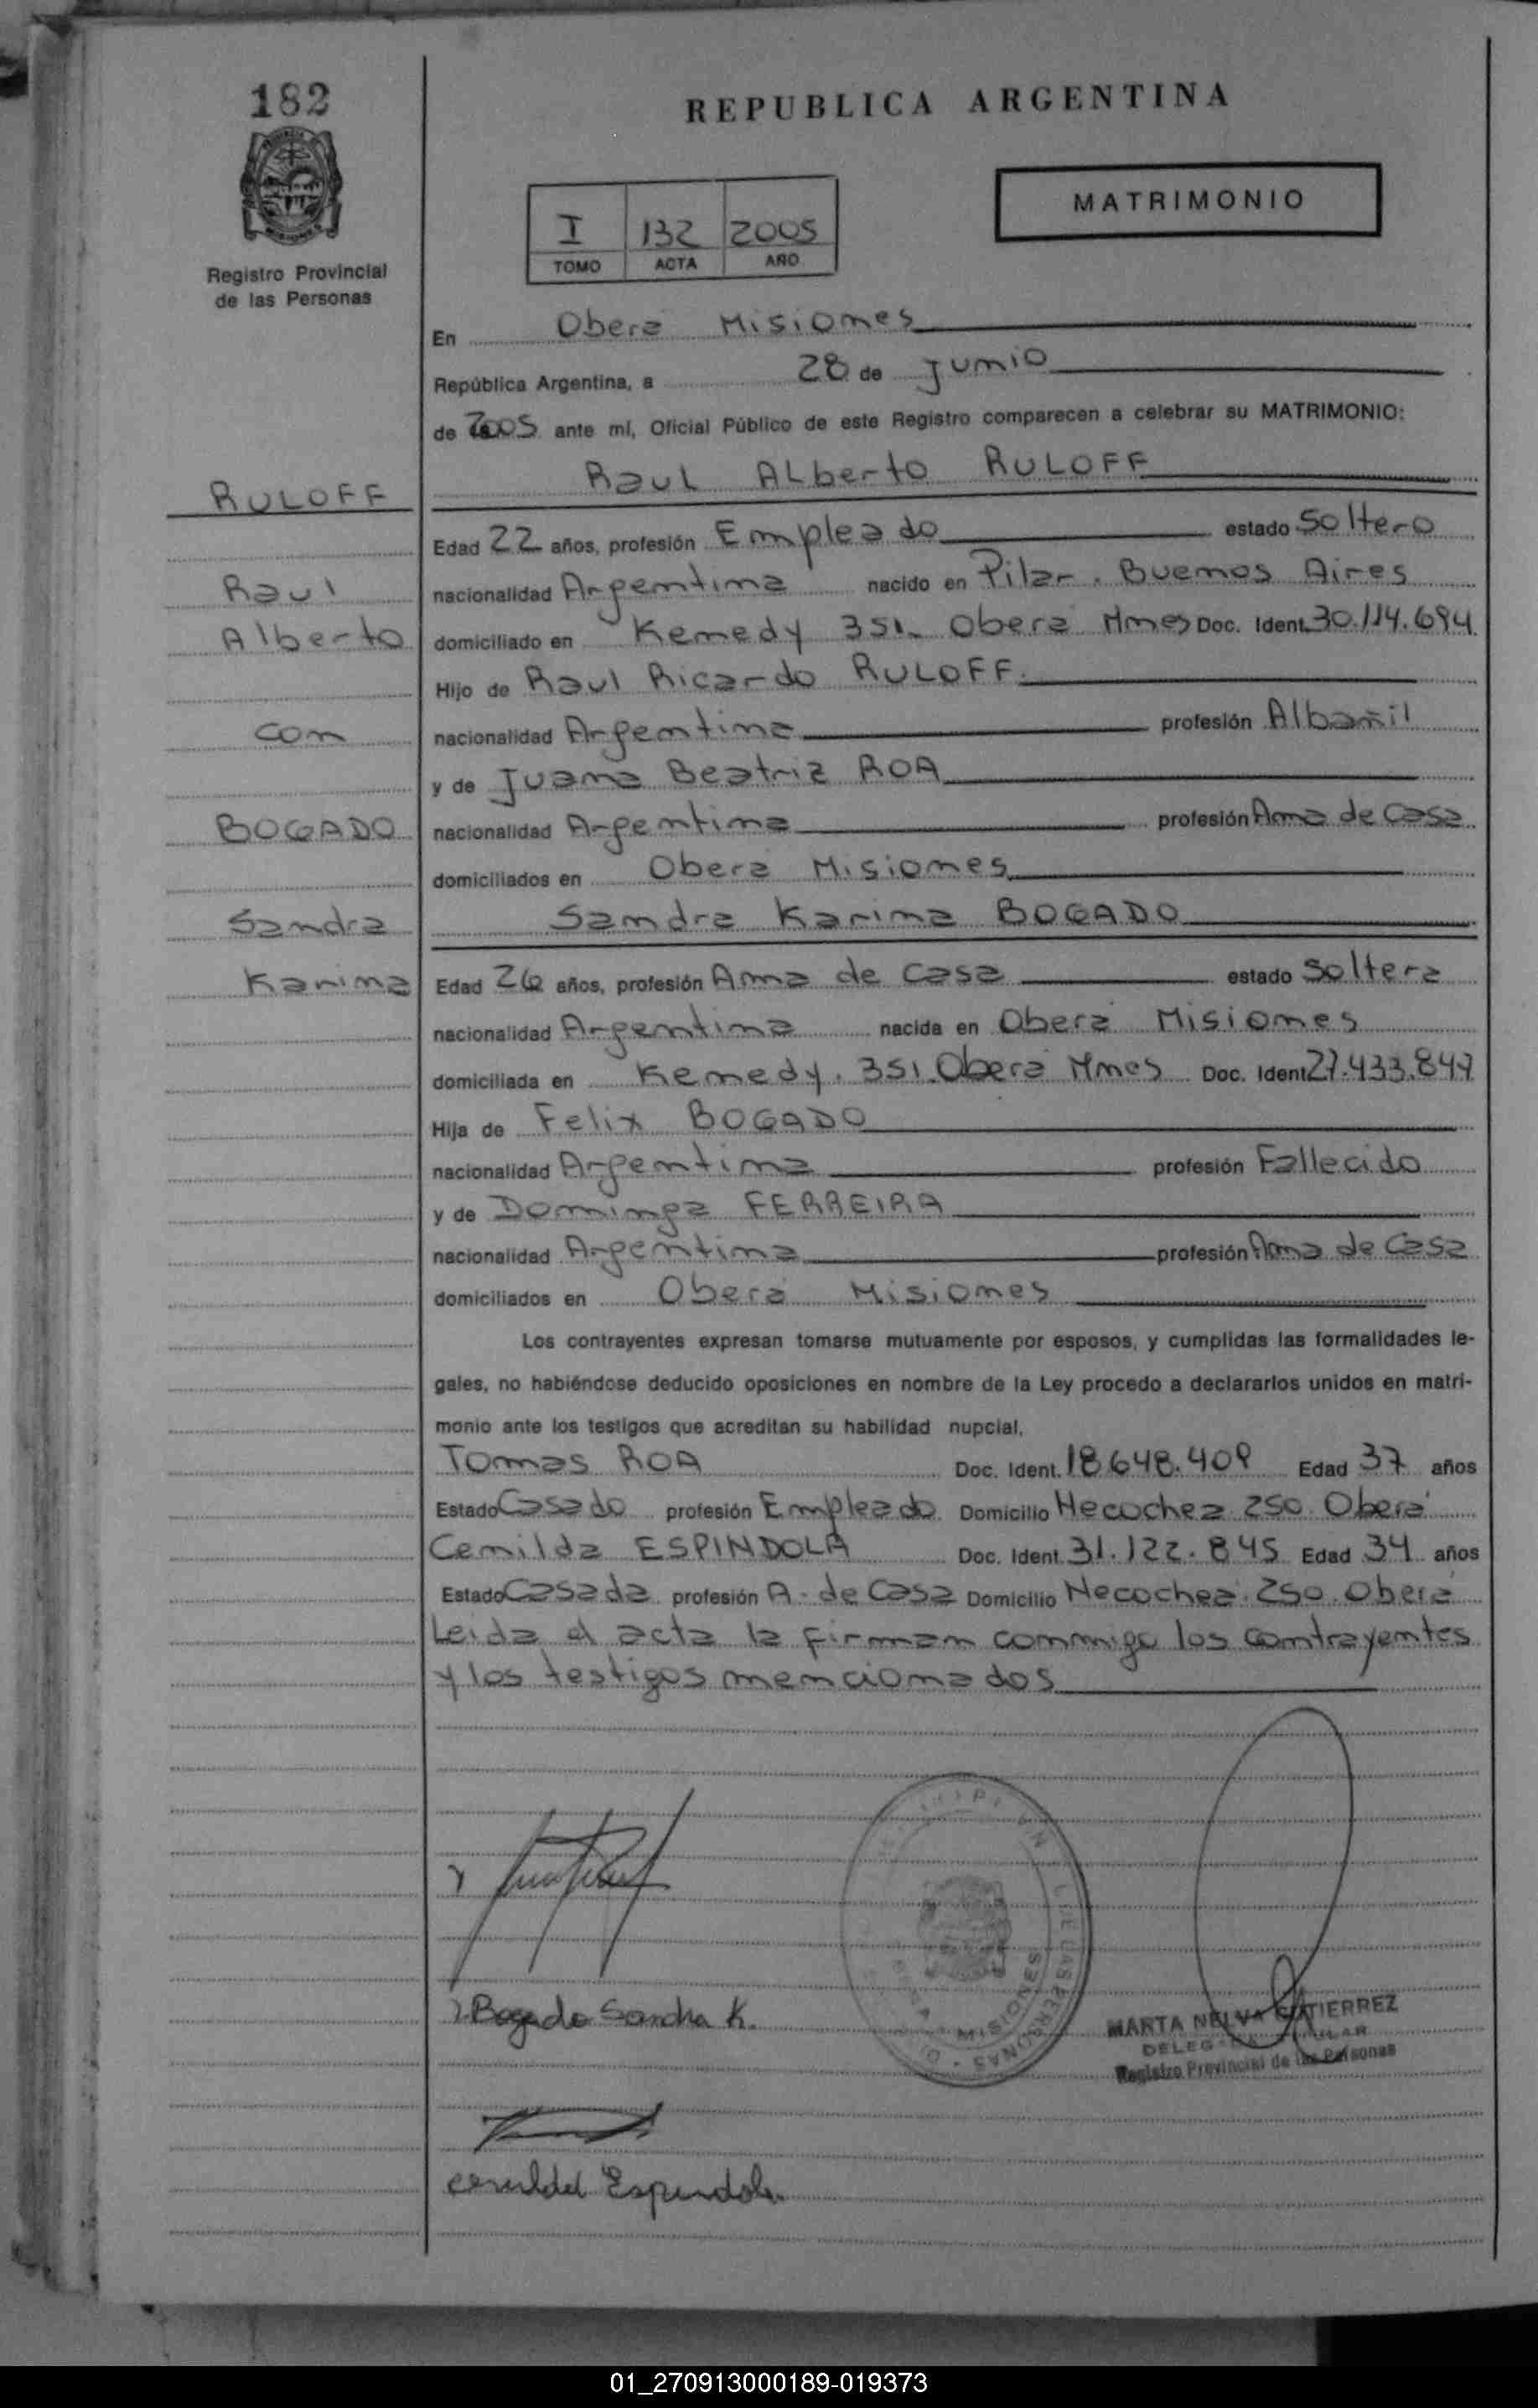 182
Registro Provincial
de las Personas
REPUBLICA ARGENTINA
MATRIMONIO
I 132 2005
TOMO ACTA AÑO
En Oberá Misiones
República Argentina, a 28 de Junio
de 2005 ante mí, Oficial Público de este Registro comparecen a celebrar su MATRIMONIO:
Raul Alberto RULOFF
RULOFF
Edad 22 años, profesión Empleado estado Soltero
Raul
nacionalidad Argentina nacido en Pilar. Buenos Aires
Alberto
domiciliado en Kenedy 351. Oberá Mnes Doc. Ident. 30.114.694
Hijo de Raul Ricardo RULOFF.
con
nacionalidad Argentina profesión Albañil
y de Juana Beatriz ROA
BOGADO
nacionalidad Argentina profesión Ama de Casa
domiciliados en Oberá Misiones
Sandra
Sandra Karina BOGADO
Karina
Edad 26 años, profesión Ama de Casa estado Soltera
nacionalidad Argentina nacida en Oberá Misiones
domiciliada en Kenedy. 351. Oberá Mnes Doc. Ident 27.433.847
Hija de Felix BOGADO
nacionalidad Argentina profesión Fallecido
y de Dominga FERREIRA
nacionalidad Argentina profesión Ama de Casa
domiciliados en Oberá Misiones
Los contrayentes expresan tomarse mutuamente por esposos, y cumplidas las formalidades le-
gales, no habiéndose deducido oposiciones en nombre de la Ley procedo a declararlos unidos en matri-
monio ante los testigos que acreditan su habilidad nupcial.
Tomas ROA Doc. Ident. 18.648.409 Edad 37 años
Estado Casado profesión Empleado Domicilio Necochea 250. Oberá
Cenilda ESPINDOLA Doc. Ident. 31.122.845 Edad 34 años
Estado Casada profesión A. de Casa Domicilio Necochea. 250. Oberá
Leida el acta la firman conmigo los contrayentes
y los testigos mencionados
Bogado Sandra K.
MISIONES
MARTA NELVA GUTIERREZ
Registro Provincial de las Personas
Espindola
01_270913000189-019373